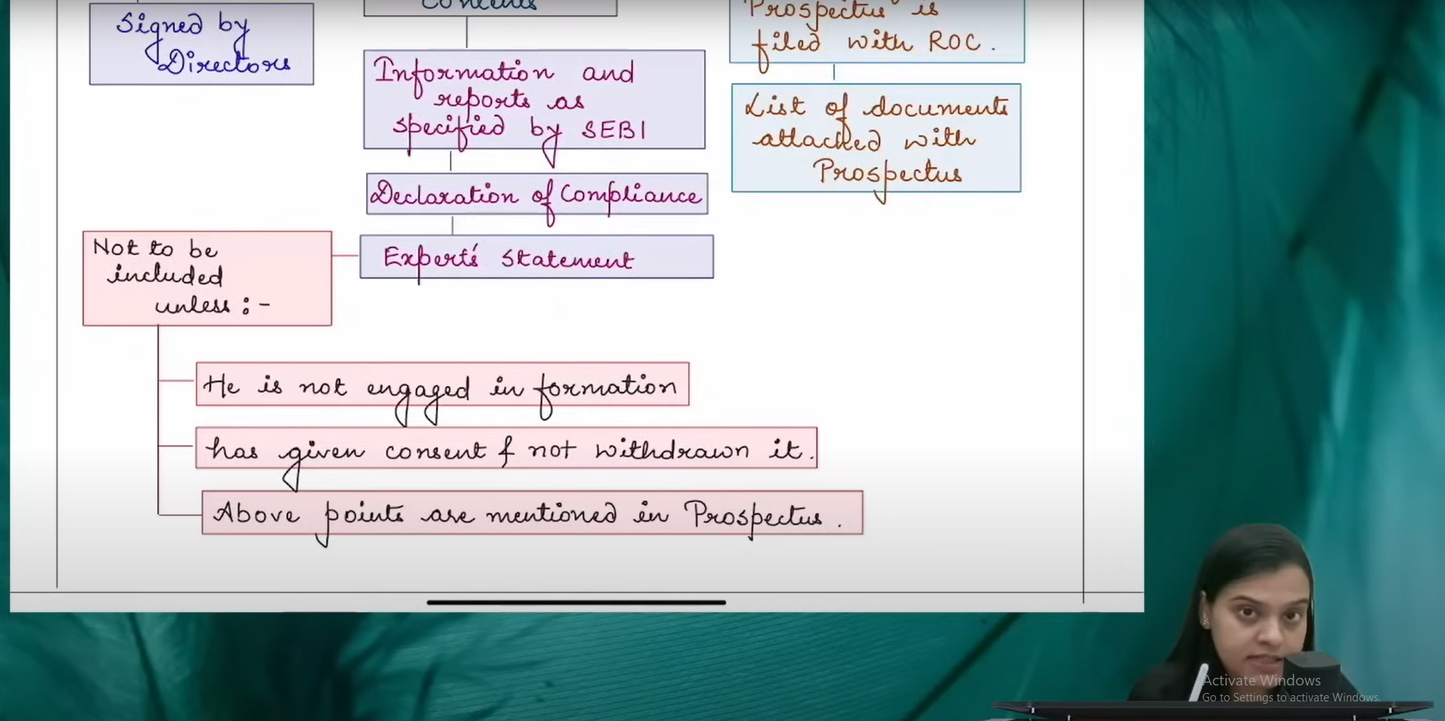 Signed by
Directors
Contents
Information and
reports as
specified by SEBI
Declaration of Compliance
Expert's statement
Prospectus is
filed with ROC.
List of documents
attached with
Prospectus
Not to be
included
unless :-
He is not engaged in formation
has given consent & not withdrawn it.
Above points are mentioned in Prospectus.
Activate Windows
Go to Settings to activate Windows.